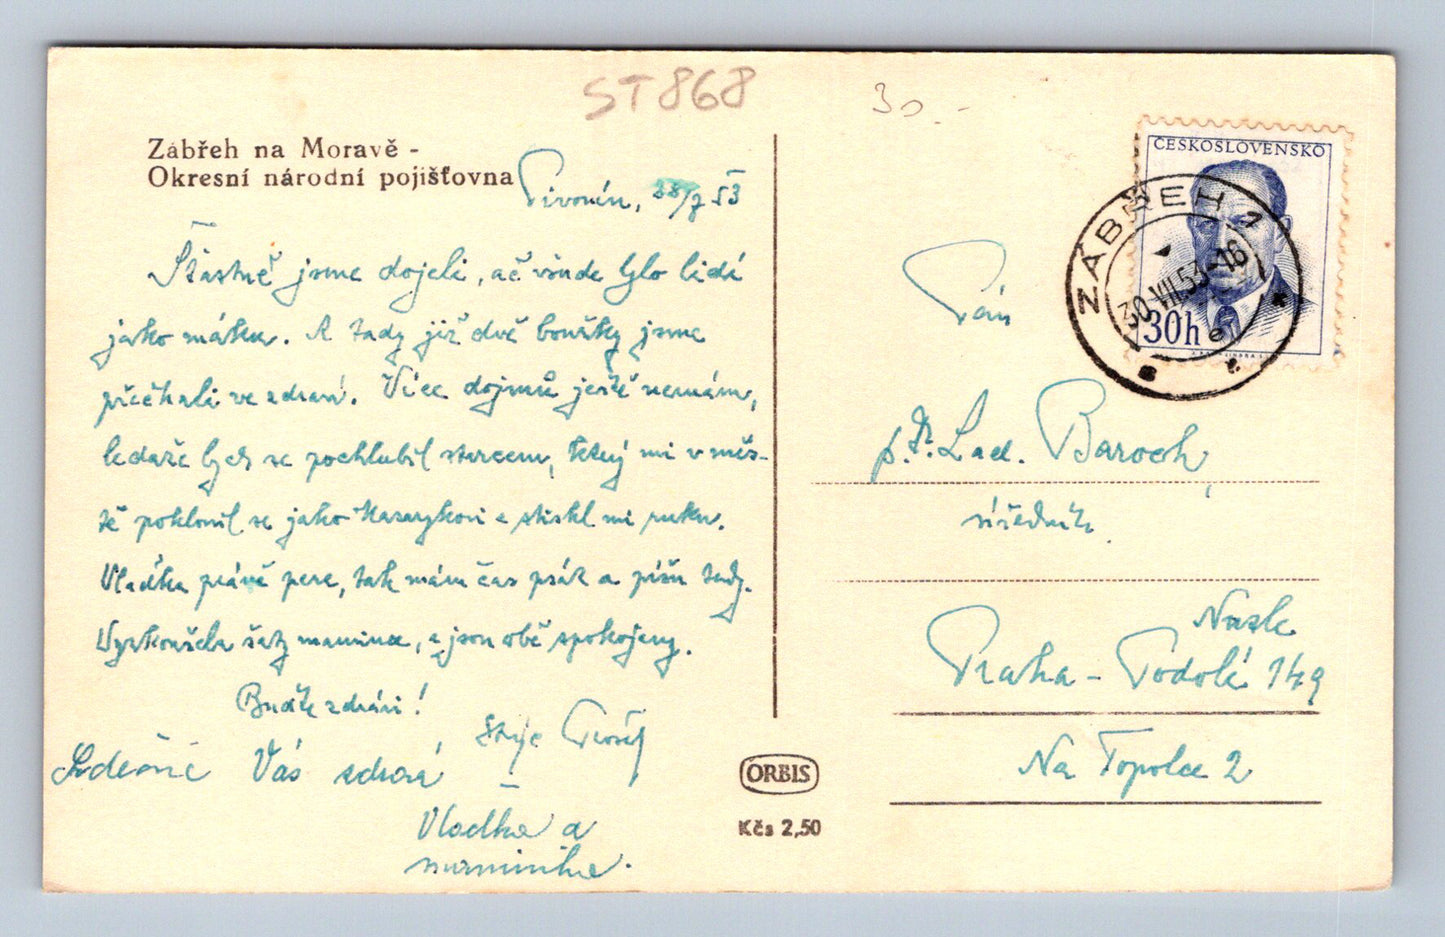 ST868
30.-
Zábřeh na Moravě -
Okresní národní pojišťovna
Pivonín, 28/7 53
Šťastně jsme dojeli, ač všude bylo lidí
jako máku. A tady již dvě bouřky jsme
přečkali ve zdraví. Více dojmů ještě nemám,
ledaže bych se pochlubil starcem, který mi v měs-
tě poklonil se jako Masarykovi a stiskl mi ruku.
Vlaďka právě pere, tak mám čas psát a píšu tedy.
Vyzkoušela šaty mamince, a jsou obě spokojeny.
Buďte zdrávi!
Strýc
Srdečně Vás zdraví
Vladka a
maminka.
ČESKOSLOVENSKO
30h
ZÁBŘEH 1
30.VII.53-16
e
Pán
p. Dr. Lad. Baroch,
úředník.
Nusle
Praha - Podolí 149
Na Topolce 2
ORBIS
Kčs 2,50